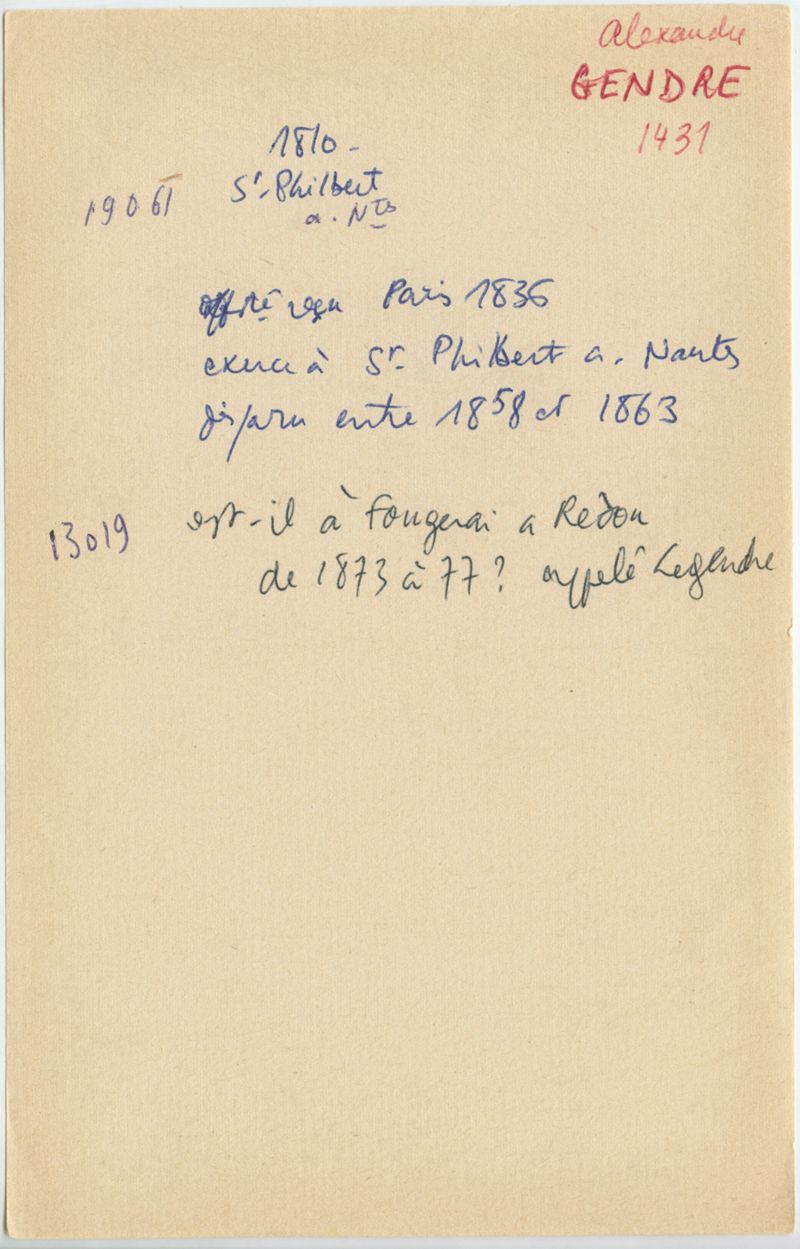 Alexandre
GENDRE
1431
1810 -
St. Philbert
a. Nts
19061
reçu Paris 1836
exerce à St. Philbert a. Nantes
disparu entre 1858 et 1863
13019
est-il à Fougerai a Redon
de 1873 à 77 ? appelé Legendre